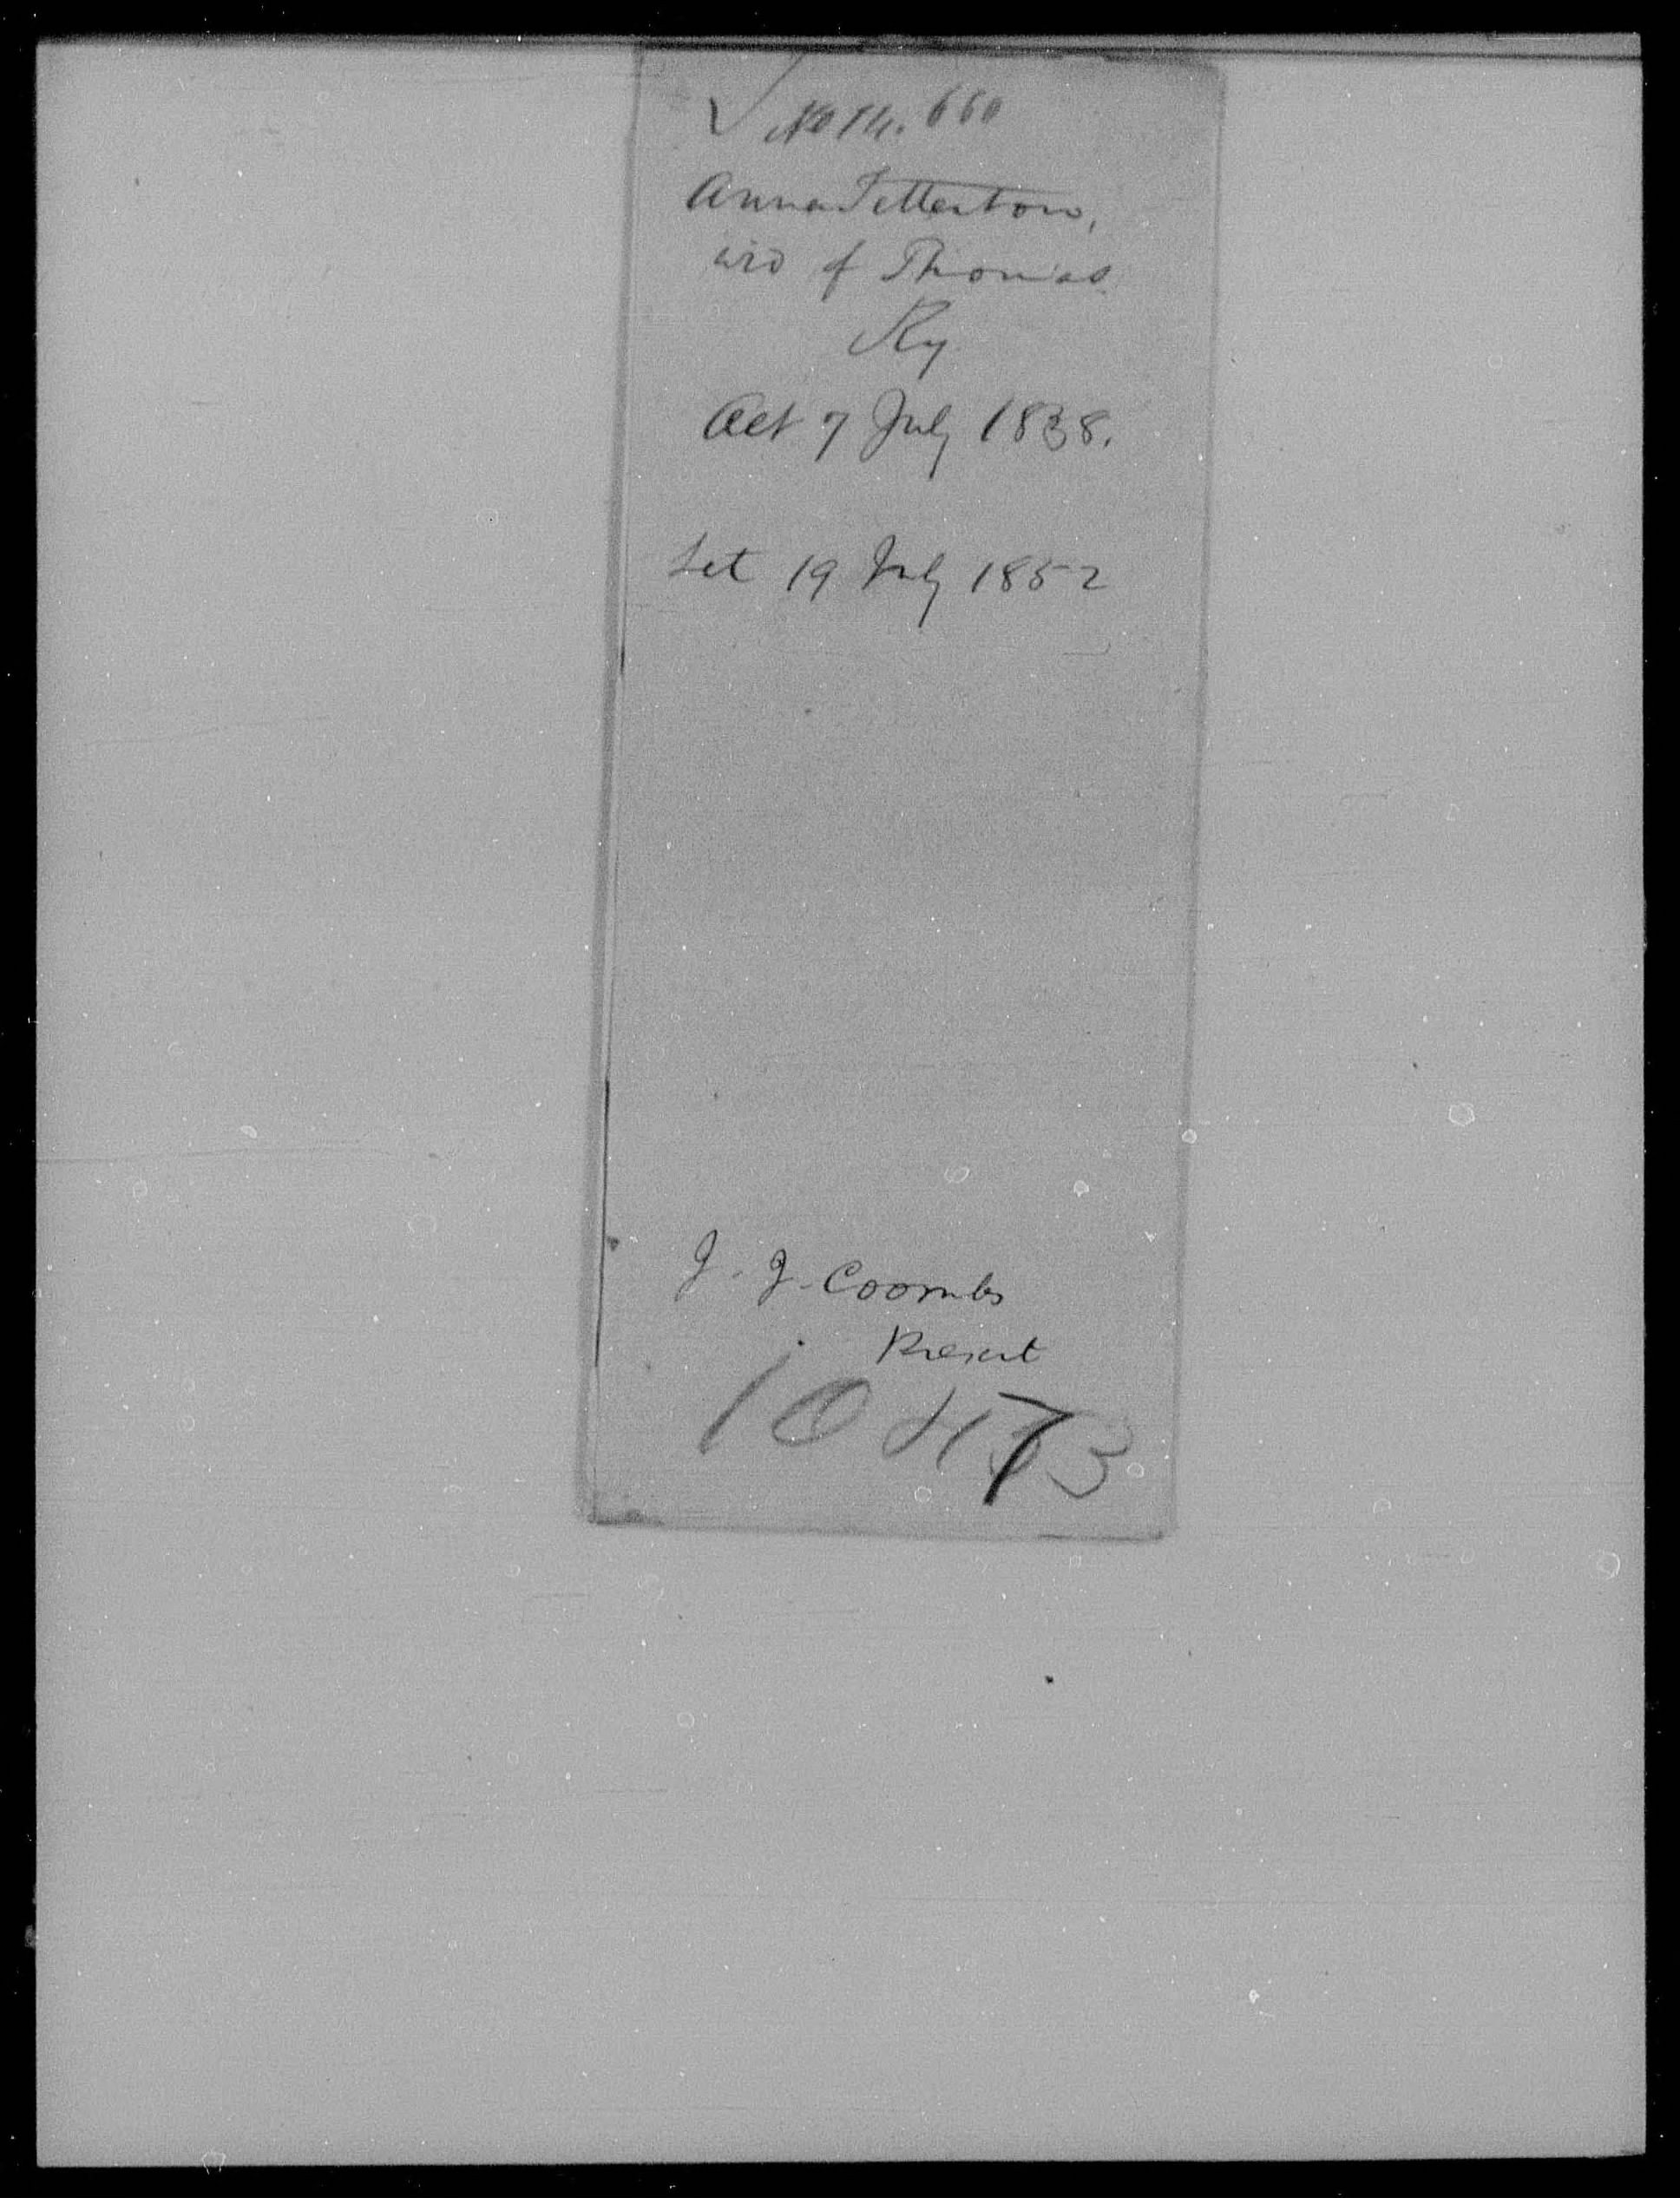 Anna Tetterton,
wid of Thomas
Ky
Act 7 July 1838.
Let 19 July 1852
J. J. Coombs
Present
10473